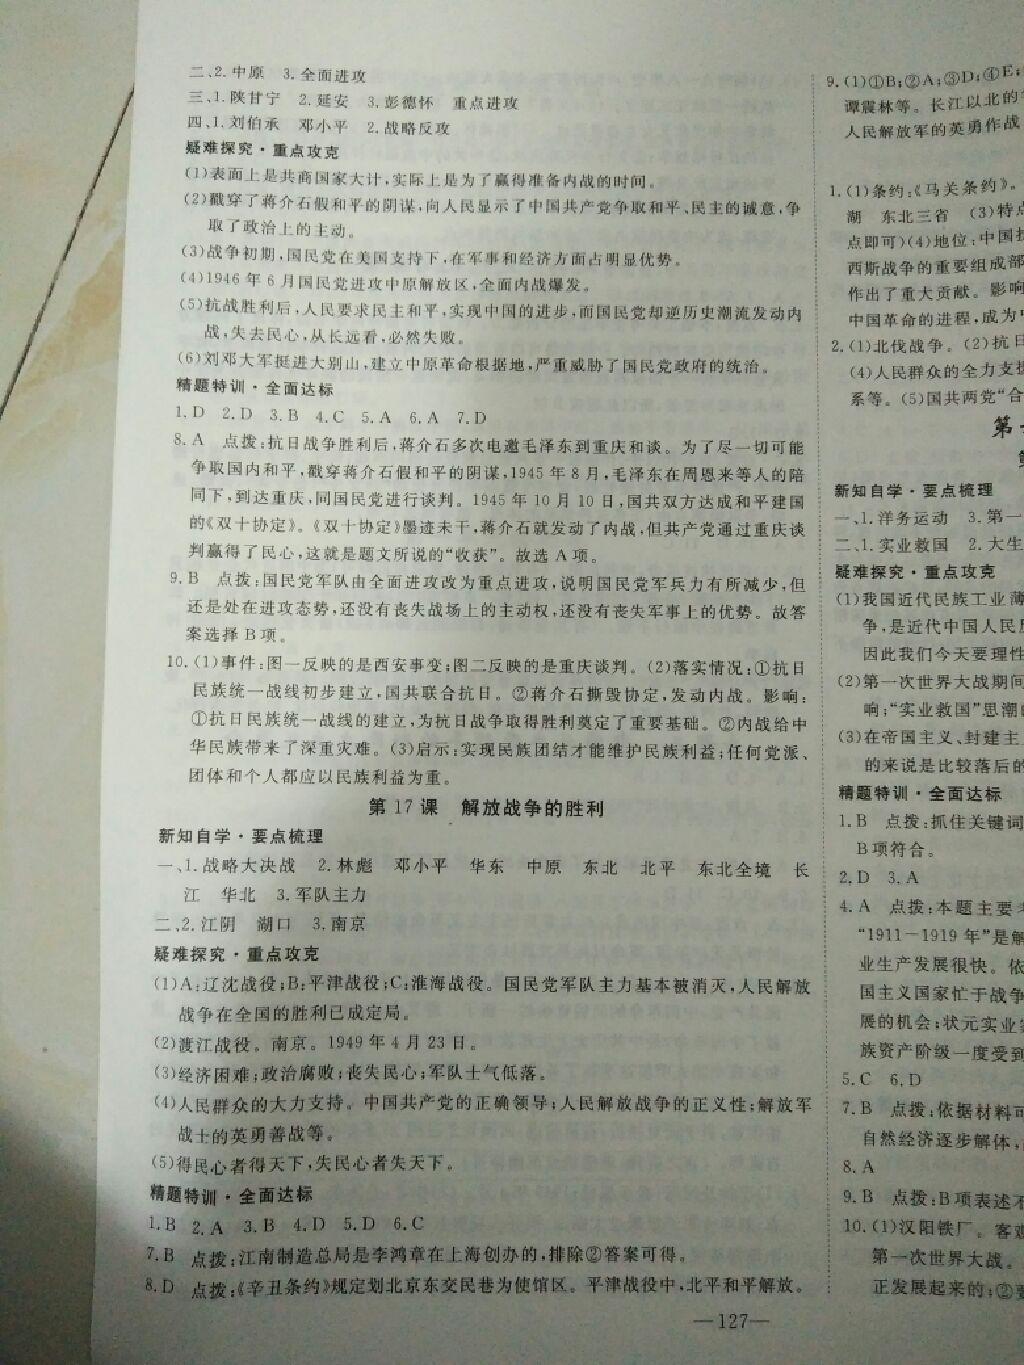 二、2.中原 3.全面进攻
三、1.陕甘宁 2.延安 3.彭德怀 重点进攻
四、1.刘伯承 邓小平 2.战略反攻
疑难探究·重点攻克
(1)表面上是共商国家大计,实际上是为了赢得准备内战的时间。
(2)戳穿了蒋介石假和平的阴谋,向人民显示了中国共产党争取和平、民主的诚意,争
取了政治上的主动。
(3)战争初期,国民党在美国支持下,在军事和经济方面占明显优势。
(4)1946年6月国民党进攻中原解放区,全面内战爆发。
(5)抗战胜利后,人民要求民主和平,实现中国的进步,而国民党却逆历史潮流发动内
战,失去民心,从长远看,必然失败。
(6)刘邓大军挺进大别山,建立中原革命根据地,严重威胁了国民党政府的统治。
精题特训·全面达标
1.D 2.D 3.B 4.C 5.A 6.A 7.D
8.A 点拨:抗日战争胜利后,蒋介石多次电邀毛泽东到重庆和谈。为了尽一切可能
争取国内和平,戳穿蒋介石假和平的阴谋,1945年8月,毛泽东在周恩来等人的陪
同下,到达重庆,同国民党进行谈判。1945年10月10日,国共双方达成和平建国
的《双十协定》。《双十协定》墨迹未干,蒋介石就发动了内战,但共产党通过重庆谈
判赢得了民心,这就是题文所说的“收获”。故选A项。
9.B 点拨:国民党军队由全面进攻改为重点进攻,说明国民党军兵力有所减少,但
还是处在进攻态势,还没有丧失战场上的主动权,还没有丧失军事上的优势。故答
案选择B项。
10.(1)事件:图一反映的是西安事变;图二反映的是重庆谈判。(2)落实情况:①抗日
民族统一战线初步建立,国共联合抗日。②蒋介石撕毁协定,发动内战。影响:
①抗日民族统一战线的建立,为抗日战争取得胜利奠定了重要基础。②内战给中
华民族带来了深重灾难。(3)启示:实现民族团结才能维护民族利益;任何党派、
团体和个人都应以民族利益为重。
第17课 解放战争的胜利
新知自学·要点梳理
一、1.战略大决战 2.林彪 邓小平 华东 中原 东北 北平 东北全境 长
江 华北 3.军队主力
二、2.江阴 湖口 3.南京
疑难探究·重点攻克
(1)A:辽沈战役;B:平津战役;C:淮海战役。国民党军队主力基本被消灭,人民解放
战争在全国的胜利已成定局。
(2)渡江战役。南京。1949年4月23日。
(3)经济困难;政治腐败;丧失民心;军队士气低落。
(4)人民群众的大力支持。中国共产党的正确领导;人民解放战争的正义性;解放军
战士的英勇善战等。
(5)得民心者得天下,失民心者失天下。
精题特训·全面达标
1.B 2.A 3.B 4.D 5.D 6.C
7.B 点拨:江南制造总局是李鸿章在上海创办的,排除②答案可得。
8.D 点拨:《辛丑条约》规定划北京东交民巷为使馆区。平津战役中,北平和平解放。
9.(1)①B;②A;③D;④E;
谭震林等。长江以北的
人民解放军的英勇作战
1.(1)条约:《马关条约》。
湖 东北三省 (3)特点
点即可)(4)地位:中国抗
西斯战争的重要组成部
作出了重大贡献。影响
中国革命的进程,成为
2.(1)北伐战争。(2)抗日
(4)人民群众的全力支援
系等。(5)国共两党“合
第
新知自学·要点梳理
一、1.洋务运动 3.第一
二、1.实业救国 2.大生
疑难探究·重点攻克
(1)我国近代民族工业薄
争,是近代中国人民反
因此我们今天要理性
(2)第一次世界大战期间
响;“实业救国”思潮
(3)在帝国主义、封建主
的来说是比较落后的
精题特训·全面达标
1.B 点拨:抓住关键词
B项符合。
2.D 3.A
4.A 点拨:本题主要考
“1911－1919年”是解
业生产发展很快。依
国主义国家忙于战争
展的机会;状元实业
族资产阶级一度受到
5.C 6.D
7.B 点拨:依据材料可
自然经济逐步解体,
8.A
9.B 点拨:B项表述不
10.(1)汉阳铁厂。客观
第一次世界大战。
正发展起来的;②
—127—